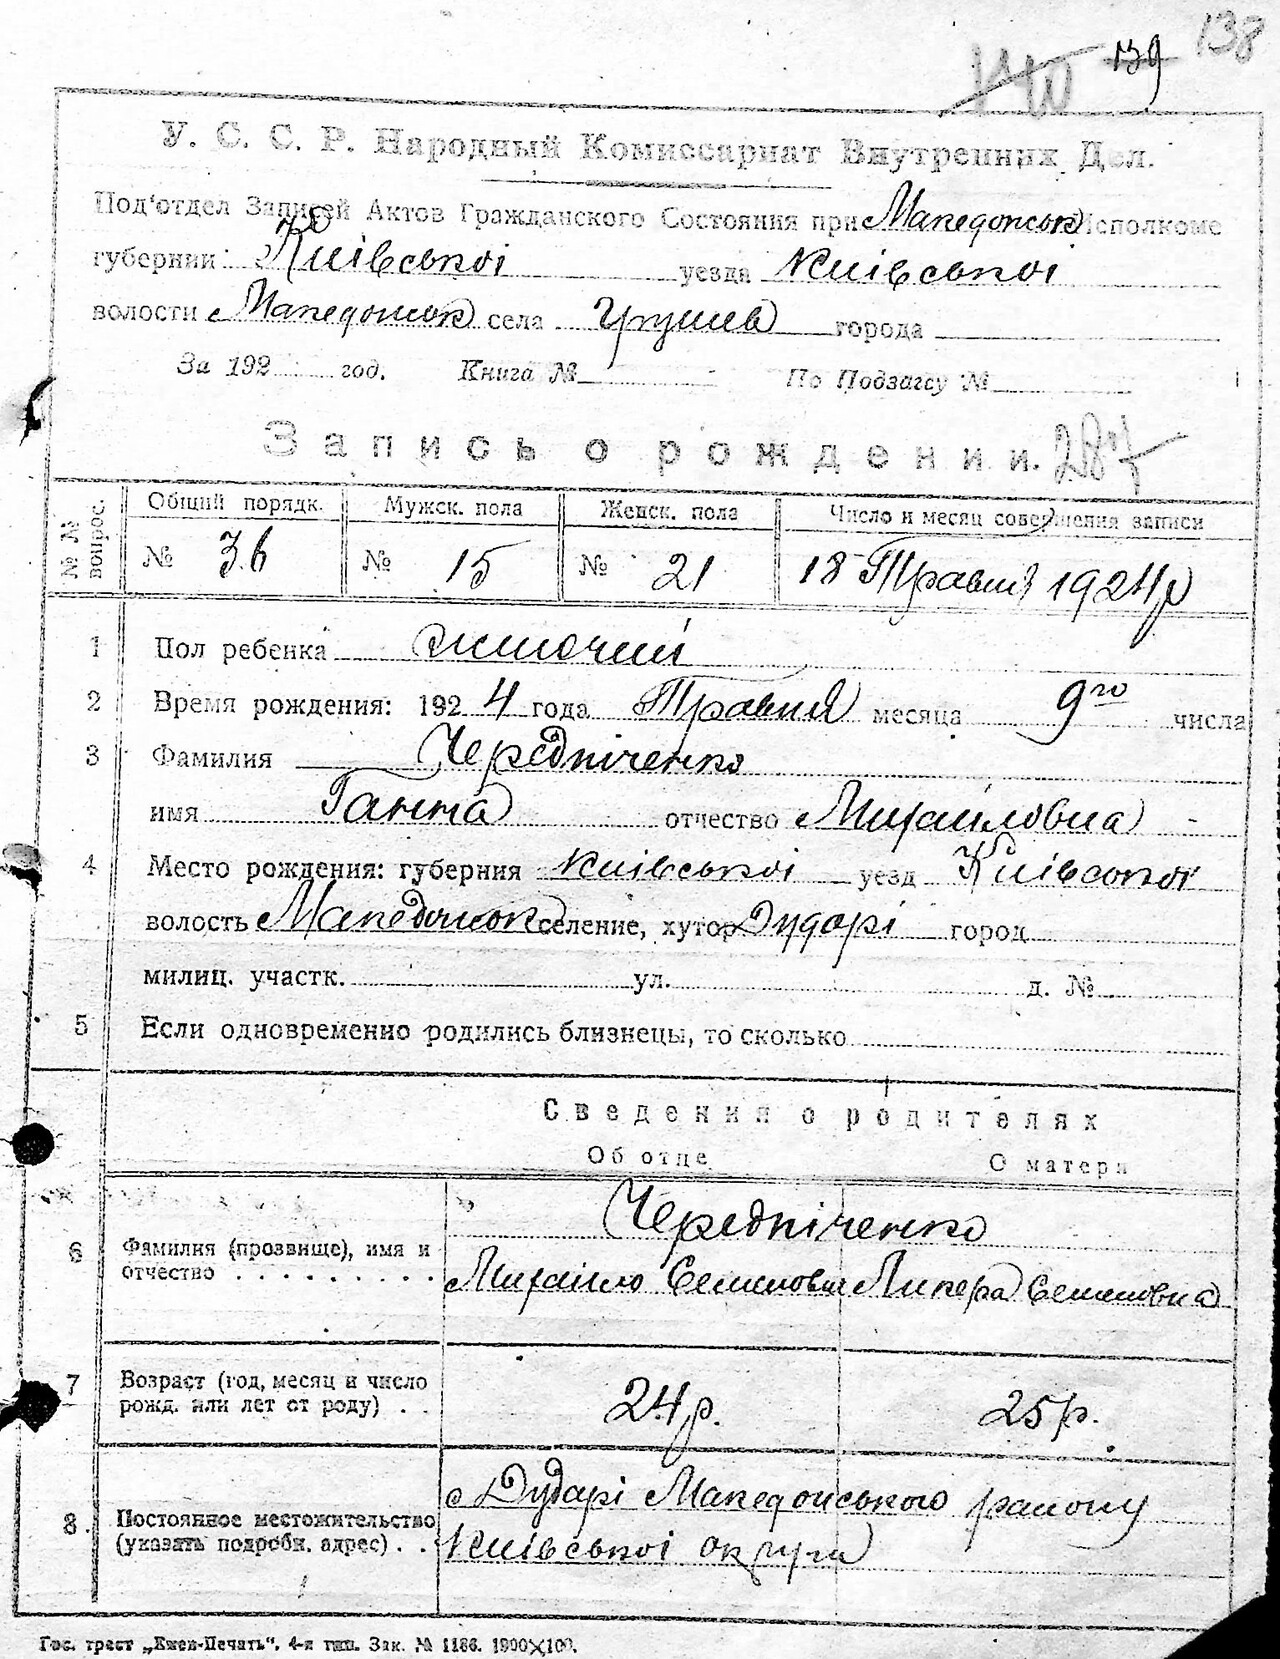 140 139 138
У. С. С. Р. Народный Комиссариат Внутренних Дел.
Под'отдел Записей Актов Гражданского Состояния при Македонськ Исполкоме
губернии Київської уезда Київської
волости Македонськ села Грушев города
За 192 год. Книга № По Подзагсу №
Запись о рождении. 287
№ № вопрос. Общий порядк. Мужск. пола Женск. пола Число и месяц совершения записи
№ 36 № 15 № 21 18 Травня 1924 р
1 Пол ребенка жіночий
2 Время рождения: 1924 года Травня месяца 9го числа
3 Фамилия Чередніченко
имя Ганна отчество Михайловна
4 Место рождения: губерния Київської уезд Київської
волость Македонськ селение, хутор Дударі город
милиц. участк. ул. д. №
5 Если одновременно родились близнецы, то сколько
Сведения о родителях
Об отце О матери
Чередніченко
6 Фамилия (прозвище), имя и
отчество . . . . . . . . . Михайло Семенович Ликера Семеновна
7 Возраст (год, месяц и число
рожд. или лет от роду) . . 24 р. 25 р.
с Дударі Македонського району
8. Постоянное местожительство
(указать подробн. адрес) . . Київської округи
Гос. трест „Киев-Печать“. 4-я тип. Зак. № 1186. 1900×100.